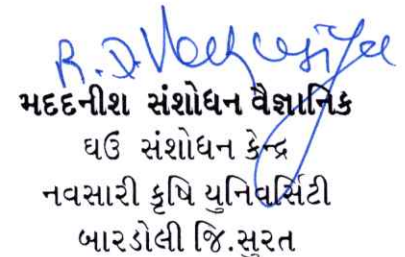 મદદનીશ સંશોધન વૈજ્ઞાનિક
ઘઉં સંશોધન કેન્દ્ર
નવસારી કૃષિ યુનિવર્સિટી
બારડોલી જિ.સુરત